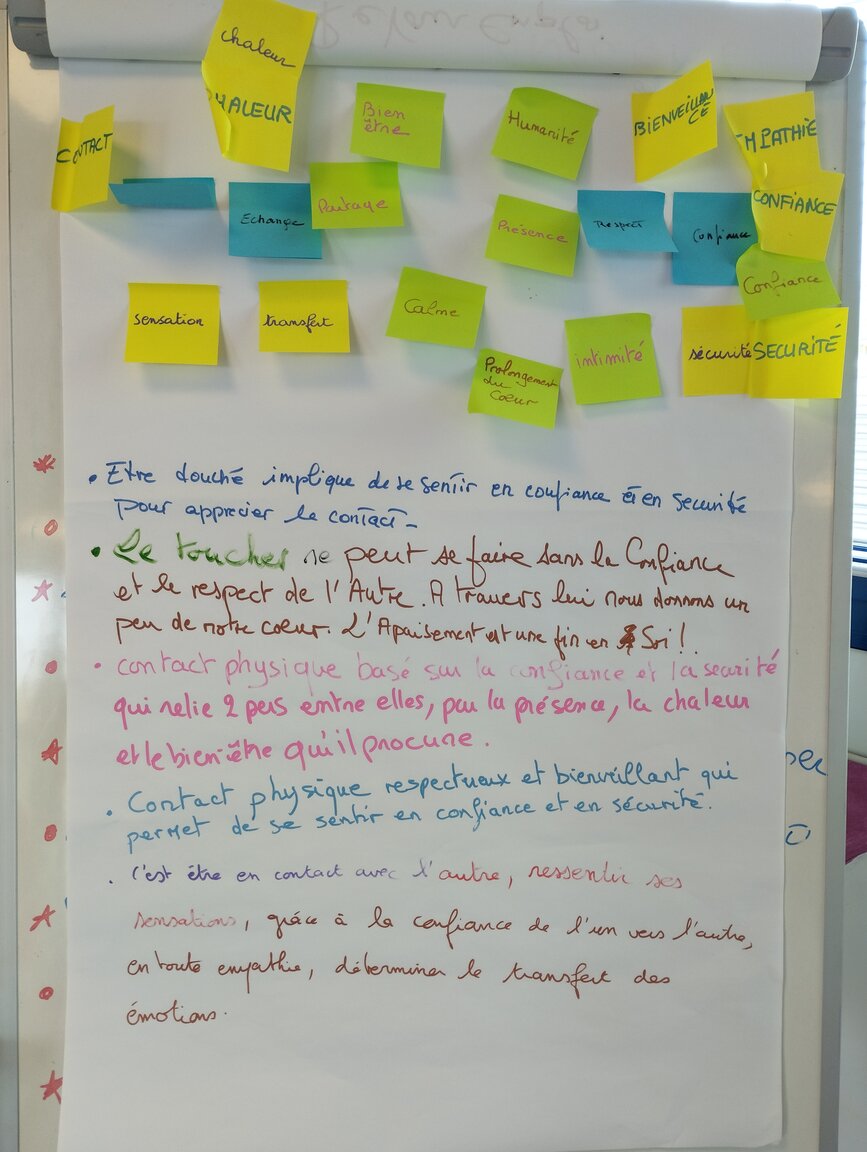 chaleur
CHALEUR
CONTACT
Bien
être
Humanité
BIENVEILLAN
CE
EMPATHIE
Echange
Partage
Présence
respect
Confiance
CONFIANCE
Confiance
sensation
transfert
Calme
Prolongement
du
Coeur
intimité
sécurité
SECURITÉ
• Etre touché implique de se sentir en confiance et en securité
pour apprecier le contact.
• Le toucher ne peut se faire sans la Confiance
et le respect de l'Autre. A travers lui nous donnons un
peu de notre coeur. L'Apaisement est une fin en Soi !
• contact physique basé sur la confiance et la securité
qui relie 2 pers entre elles, par la présence, la chaleur
et le bien-être qu'il procure.
• Contact physique respectueux et bienveillant qui
permet de se sentir en confiance et en sécurité.
. C'est être en contact avec l'autre, ressentir ses
sensations, grâce à la confiance de l'un vers l'autre,
en toute empathie, déterminer le transfert des
émotions.